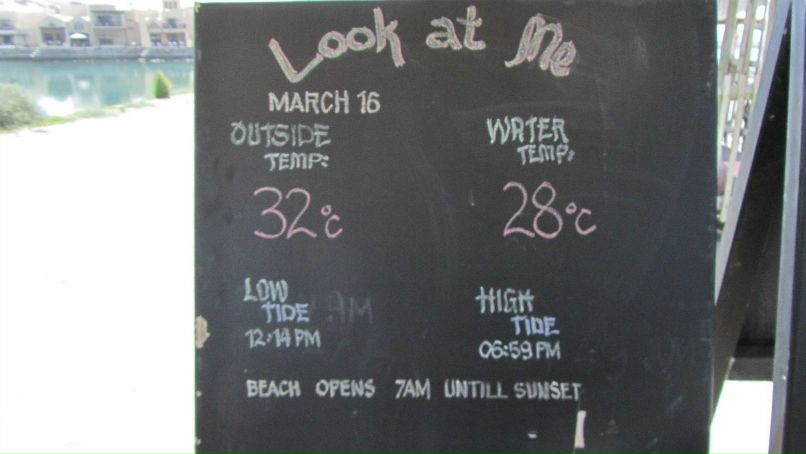 Look at Me
MARCH 16
OUTSIDE TEMP:
32°C
WATER TEMP:
28°C
LOW TIDE
12:14 PM
HIGH TIDE
06:59 PM
BEACH OPENS 7AM UNTILL SUNSET